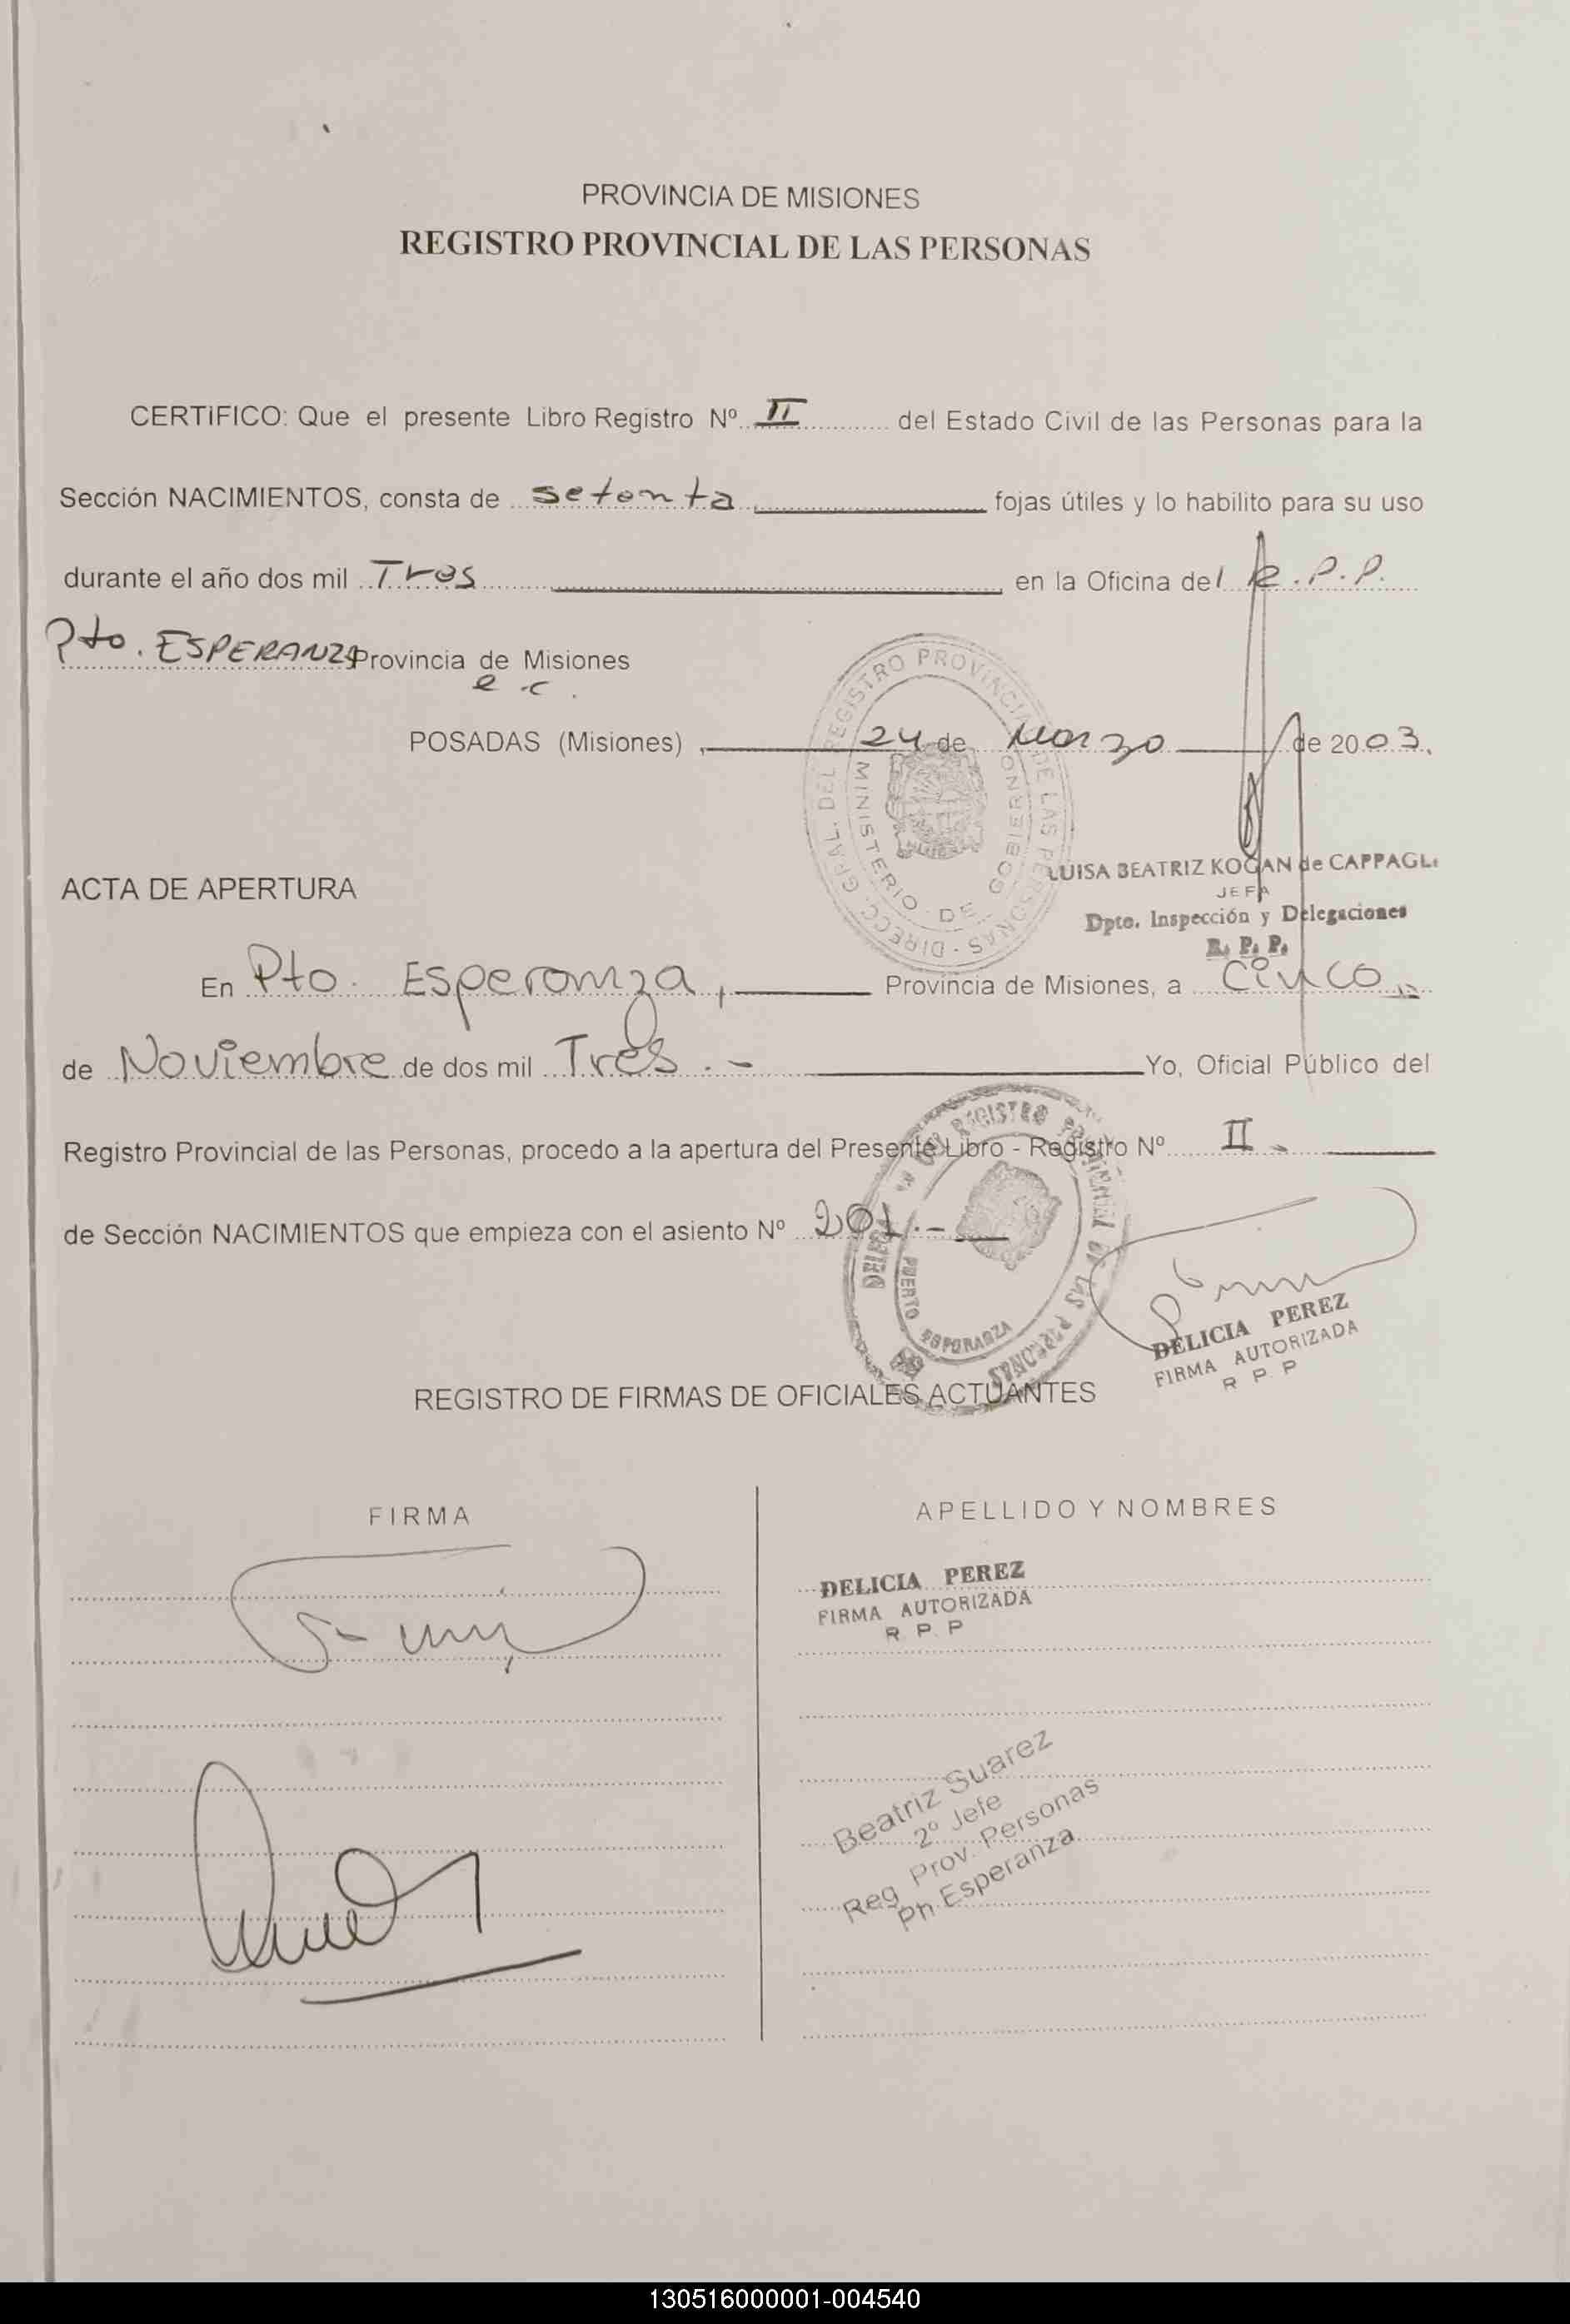 PROVINCIA DE MISIONES
REGISTRO PROVINCIAL DE LAS PERSONAS
CERTIFICO: Que el presente Libro Registro Nº II del Estado Civil de las Personas para la
Sección NACIMIENTOS, consta de setenta fojas útiles y lo habilito para su uso
durante el año dos mil Tres en la Oficina del R.P.P.
Pto. ESPERANZA Provincia de Misiones
e c.
POSADAS (Misiones), 24 de Marzo de 2003.
DIRECC. GRAL. DEL REGISTRO PROVINCIAL DE LAS PERSONAS
MINISTERIO DE GOBIERNO
LUISA BEATRIZ KOGAN de CAPPAGLI
JEFA
Dpto. Inspección y Delegaciones
R. P. P.
ACTA DE APERTURA
En Pto. Esperanza, Provincia de Misiones, a Cinco
de Noviembre de dos mil Tres.- Yo, Oficial Público del
Registro Provincial de las Personas, procedo a la apertura del Presente Libro - Registro Nº II.
de Sección NACIMIENTOS que empieza con el asiento Nº 201.-
DEL REGISTRO PROVINCIAL DE LAS PERSONAS
PUERTO ESPERANZA
DELICIA PEREZ
FIRMA AUTORIZADA
R P. P
REGISTRO DE FIRMAS DE OFICIALES ACTUANTES
FIRMA
APELLIDO Y NOMBRES
DELICIA PEREZ
FIRMA AUTORIZADA
R P. P
Beatriz Suarez
2º Jefe
Reg Prov. Personas
Esperanza
130516000001-004540